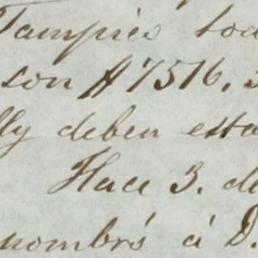 Tampico to
son $7516.
lly deben esta
Hace 3. d
nombró á D.